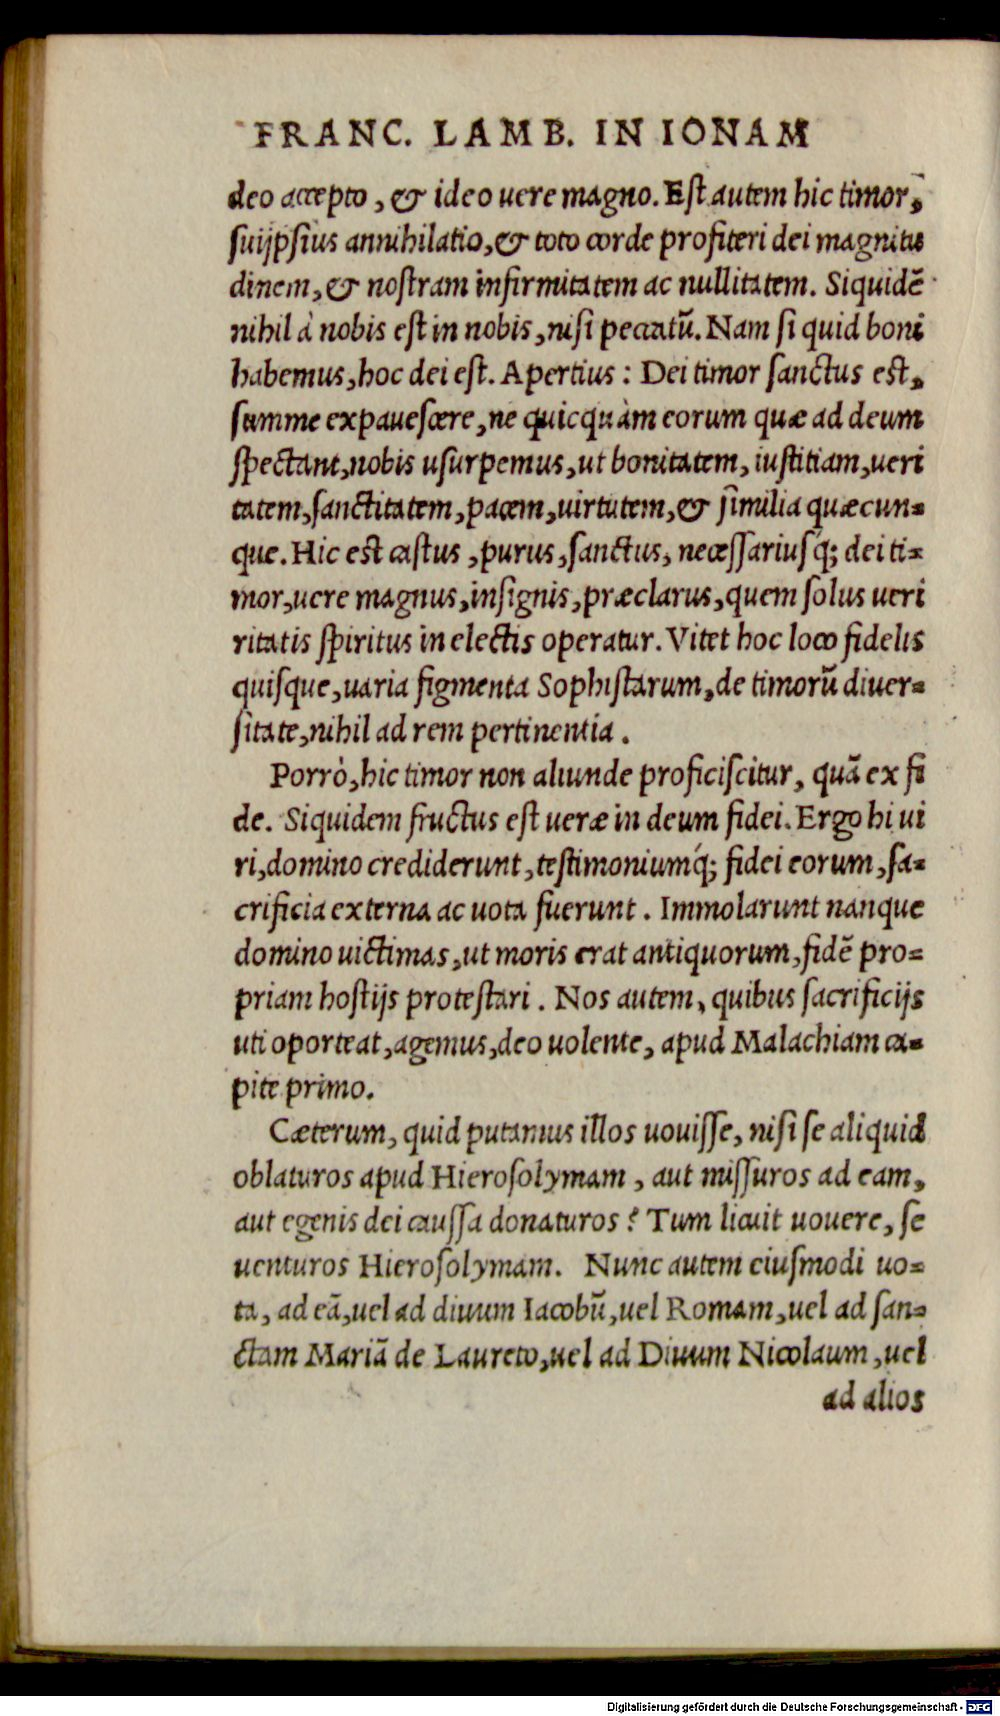 FRANC. LAMB. IN IONAM
deo accepto, & ideo uere magno. Est autem hic timor,
suijpsius annihilatio, & toto corde profiteri dei magnitu
dinem, & nostram infirmitatem ac nullitatem. Siquidē
nihil à nobis est in nobis, nisi peccatū. Nam si quid boni
habemus, hoc dei est. Apertius: Dei timor sanctus est,
summe expauescere, ne quicquàm eorum quæ ad deum
spectant, nobis usurpemus, ut bonitatem, iustitiam, ueri
tatem, sanctitatem, pacem, uirtutem, & similia quæcun=
que. Hic est castus, purus, sanctus, necessariusq́; dei ti=
mor, uere magnus, insignis, præclarus, quem solus ueri
ritatis spiritus in electis operatur. Vitet hoc loco fidelis
quisque, uaria figmenta Sophistarum, de timorū diuer=
sitate, nihil ad rem pertinentia.
Porrò, hic timor non aliunde proficiscitur, quā ex fi
de. Siquidem fructus est ueræ in deum fidei. Ergo hi ui
ri, domino crediderunt, testimoniumq́; fidei eorum, sa=
crificia externa ac uota fuerunt. Immolarunt nanque
domino uictimas, ut moris erat antiquorum, fidē pro=
priam hostijs protestari. Nos autem, quibus sacrificijs
uti oporteat, agemus, deo uolente, apud Malachiam ca=
pite primo.
Cæterum, quid putamus illos uouisse, nisi se aliquid
oblaturos apud Hierosolymam, aut missuros ad eam,
aut egenis dei caussa donaturos? Tum licuit uouere, se
uenturos Hierosolymam. Nunc autem eiusmodi uo=
ta, ad eā, uel ad diuum Iacobū, uel Romam, uel ad san=
ctam Mariā de Laureto, uel ad Diuum Nicolaum, uel
ad alios
Digitalisierung gefördert durch die Deutsche Forschungsgemeinschaft - DFG